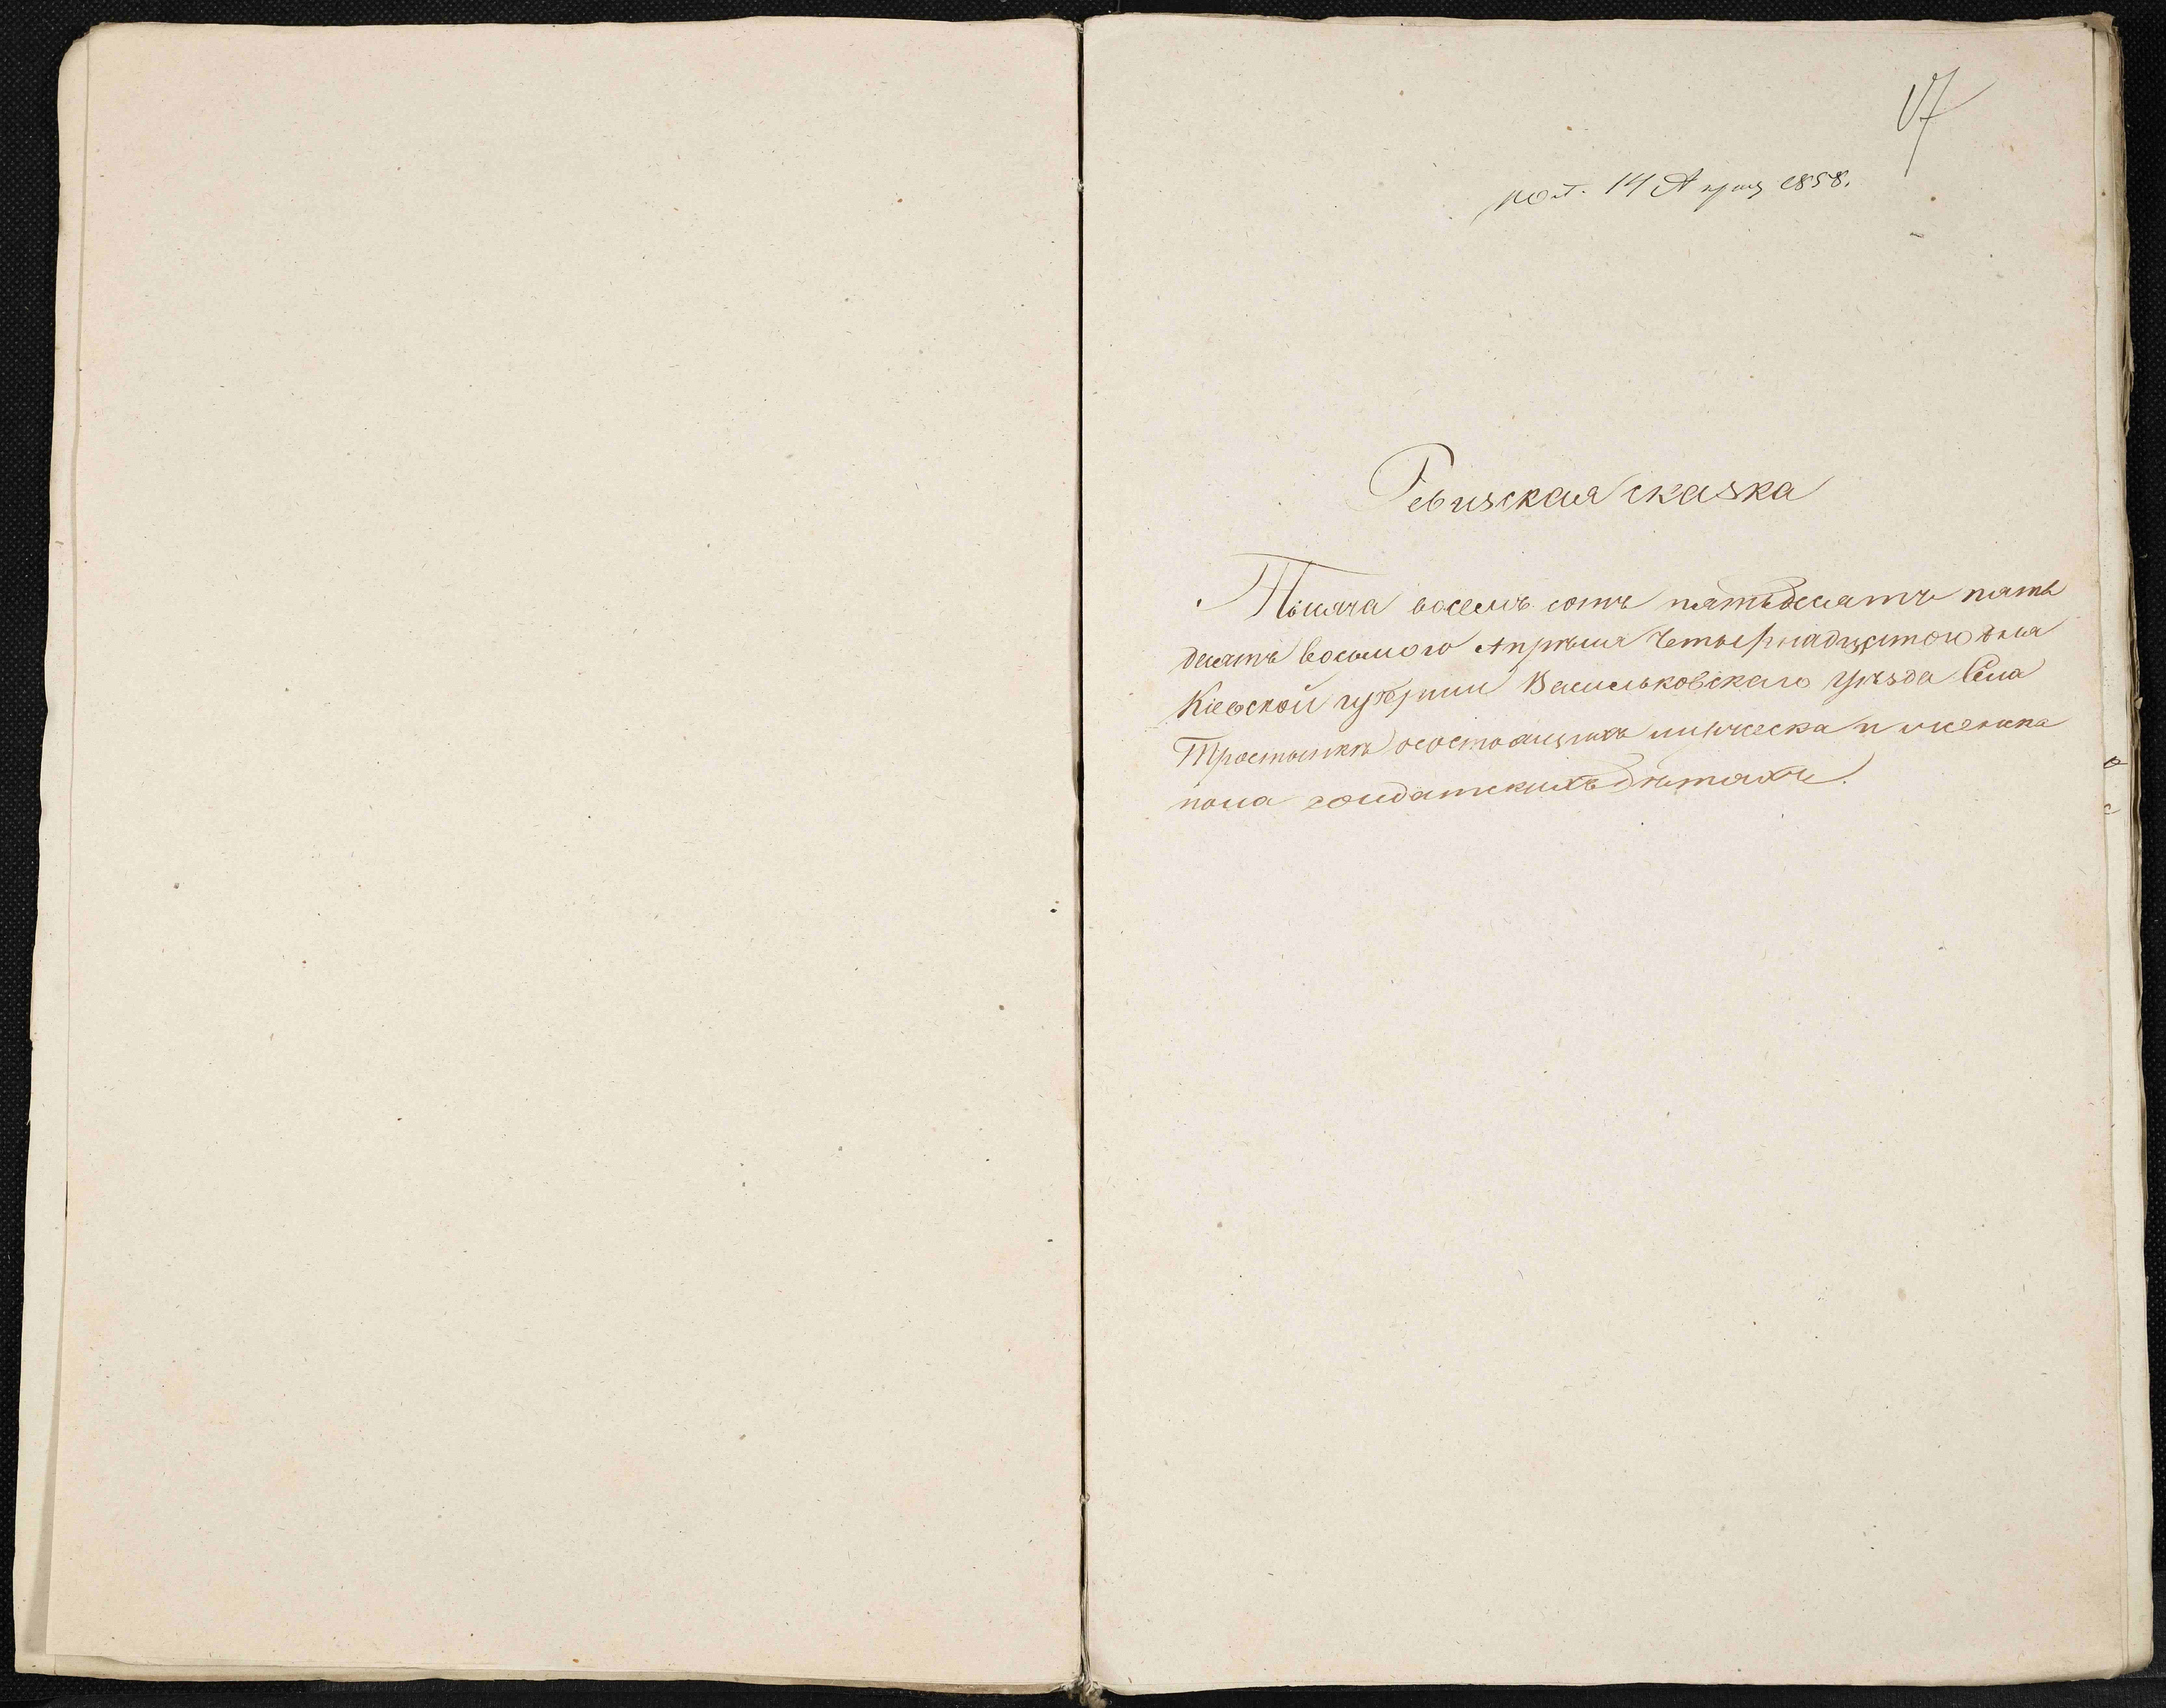 17
пол. 14 Апреля 1858.
Ревизская сказка
Тысяча восемь сотъ пятьдесятъ пять
десятъ восьмого Апрѣля Четырнадцатого дня
Кіевской губерніи Васильковскаго уѣзда Села
Тростынки о состоящихъ мужеска и женска
пола солдатскихъ дѣтяхъ.